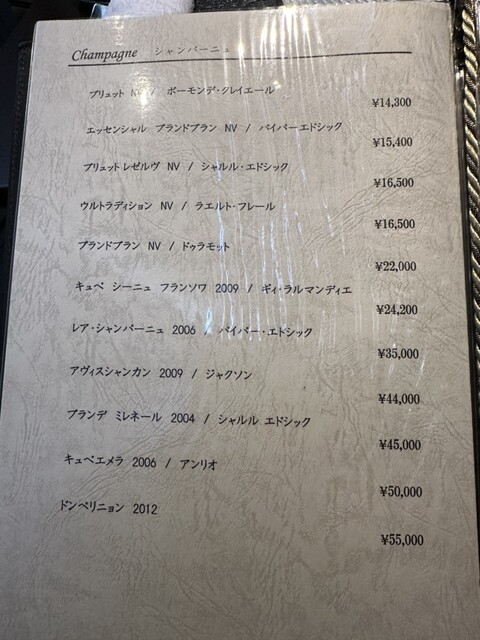 Champagne シャンパーニュ
ブリュット NV / ボーモンデ・クレイエール
¥14,300
エッセンシャル ブランドブラン NV / パイパーエドシック
¥15,400
ブリュットレゼルヴ NV / シャルル・エドシック
¥16,500
ウルトラディション NV / ラエルト・フレール
¥16,500
ブランドブラン NV / ドゥラモット
¥22,000
キュベ シーニュ フランソワ 2009 / ギィ・ラルマンディエ
¥24,200
レア・シャンパーニュ 2006 / パイパー・エドシック
¥35,000
アヴィスシャンカン 2009 / ジャクソン
¥44,000
ブランデ ミレネール 2004 / シャルル エドシック
¥45,000
キュベエメラ 2006 / アンリオ
¥50,000
ドンペリニョン 2012
¥55,000